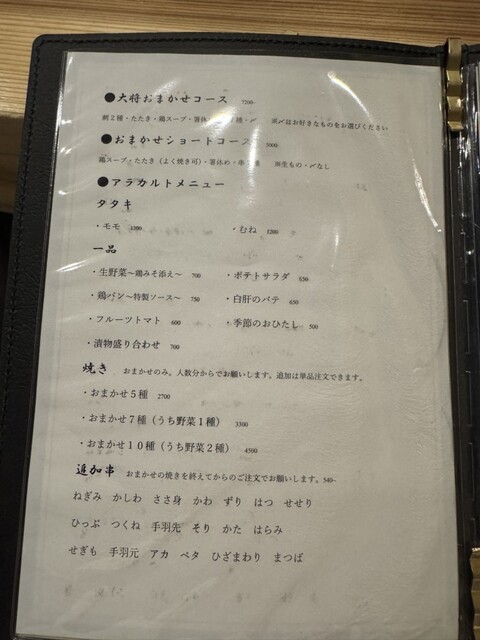 ●大将おまかせコース 7500-
刺2種・たたき・鶏スープ・箸休 ・〆 ※〆はお好きなものをお選びください
●おまかせショートコース
鶏スープ・たたき（よく焼き可）・箸休め・串 種 ※生もの・〆なし
●アラカルトメニュー
タタキ
・モモ 1300 ・むね 1200
一品
・生野菜～鶏みそ添え～ 700 ・ポテトサラダ 650
・鶏パン～特製ソース～ 750 ・白肝のパテ 650
・フルーツトマト 600 ・季節のおひたし 500
・漬物盛り合わせ 700
焼き おまかせのみ。人数分からでお願いします。追加は単品注文できます。
・おまかせ5種 2700
・おまかせ7種（うち野菜1種） 3300
・おまかせ10種（うち野菜2種） 4500
追加串 おまかせの焼きを終えてからのご注文でお願いします。540-
ねぎみ かしわ ささ身 かわ ずり はつ せせり
ひっぷ つくね 手羽先 そり かた はらみ
せぎも 手羽元 アカ ベタ ひざまわり まつば